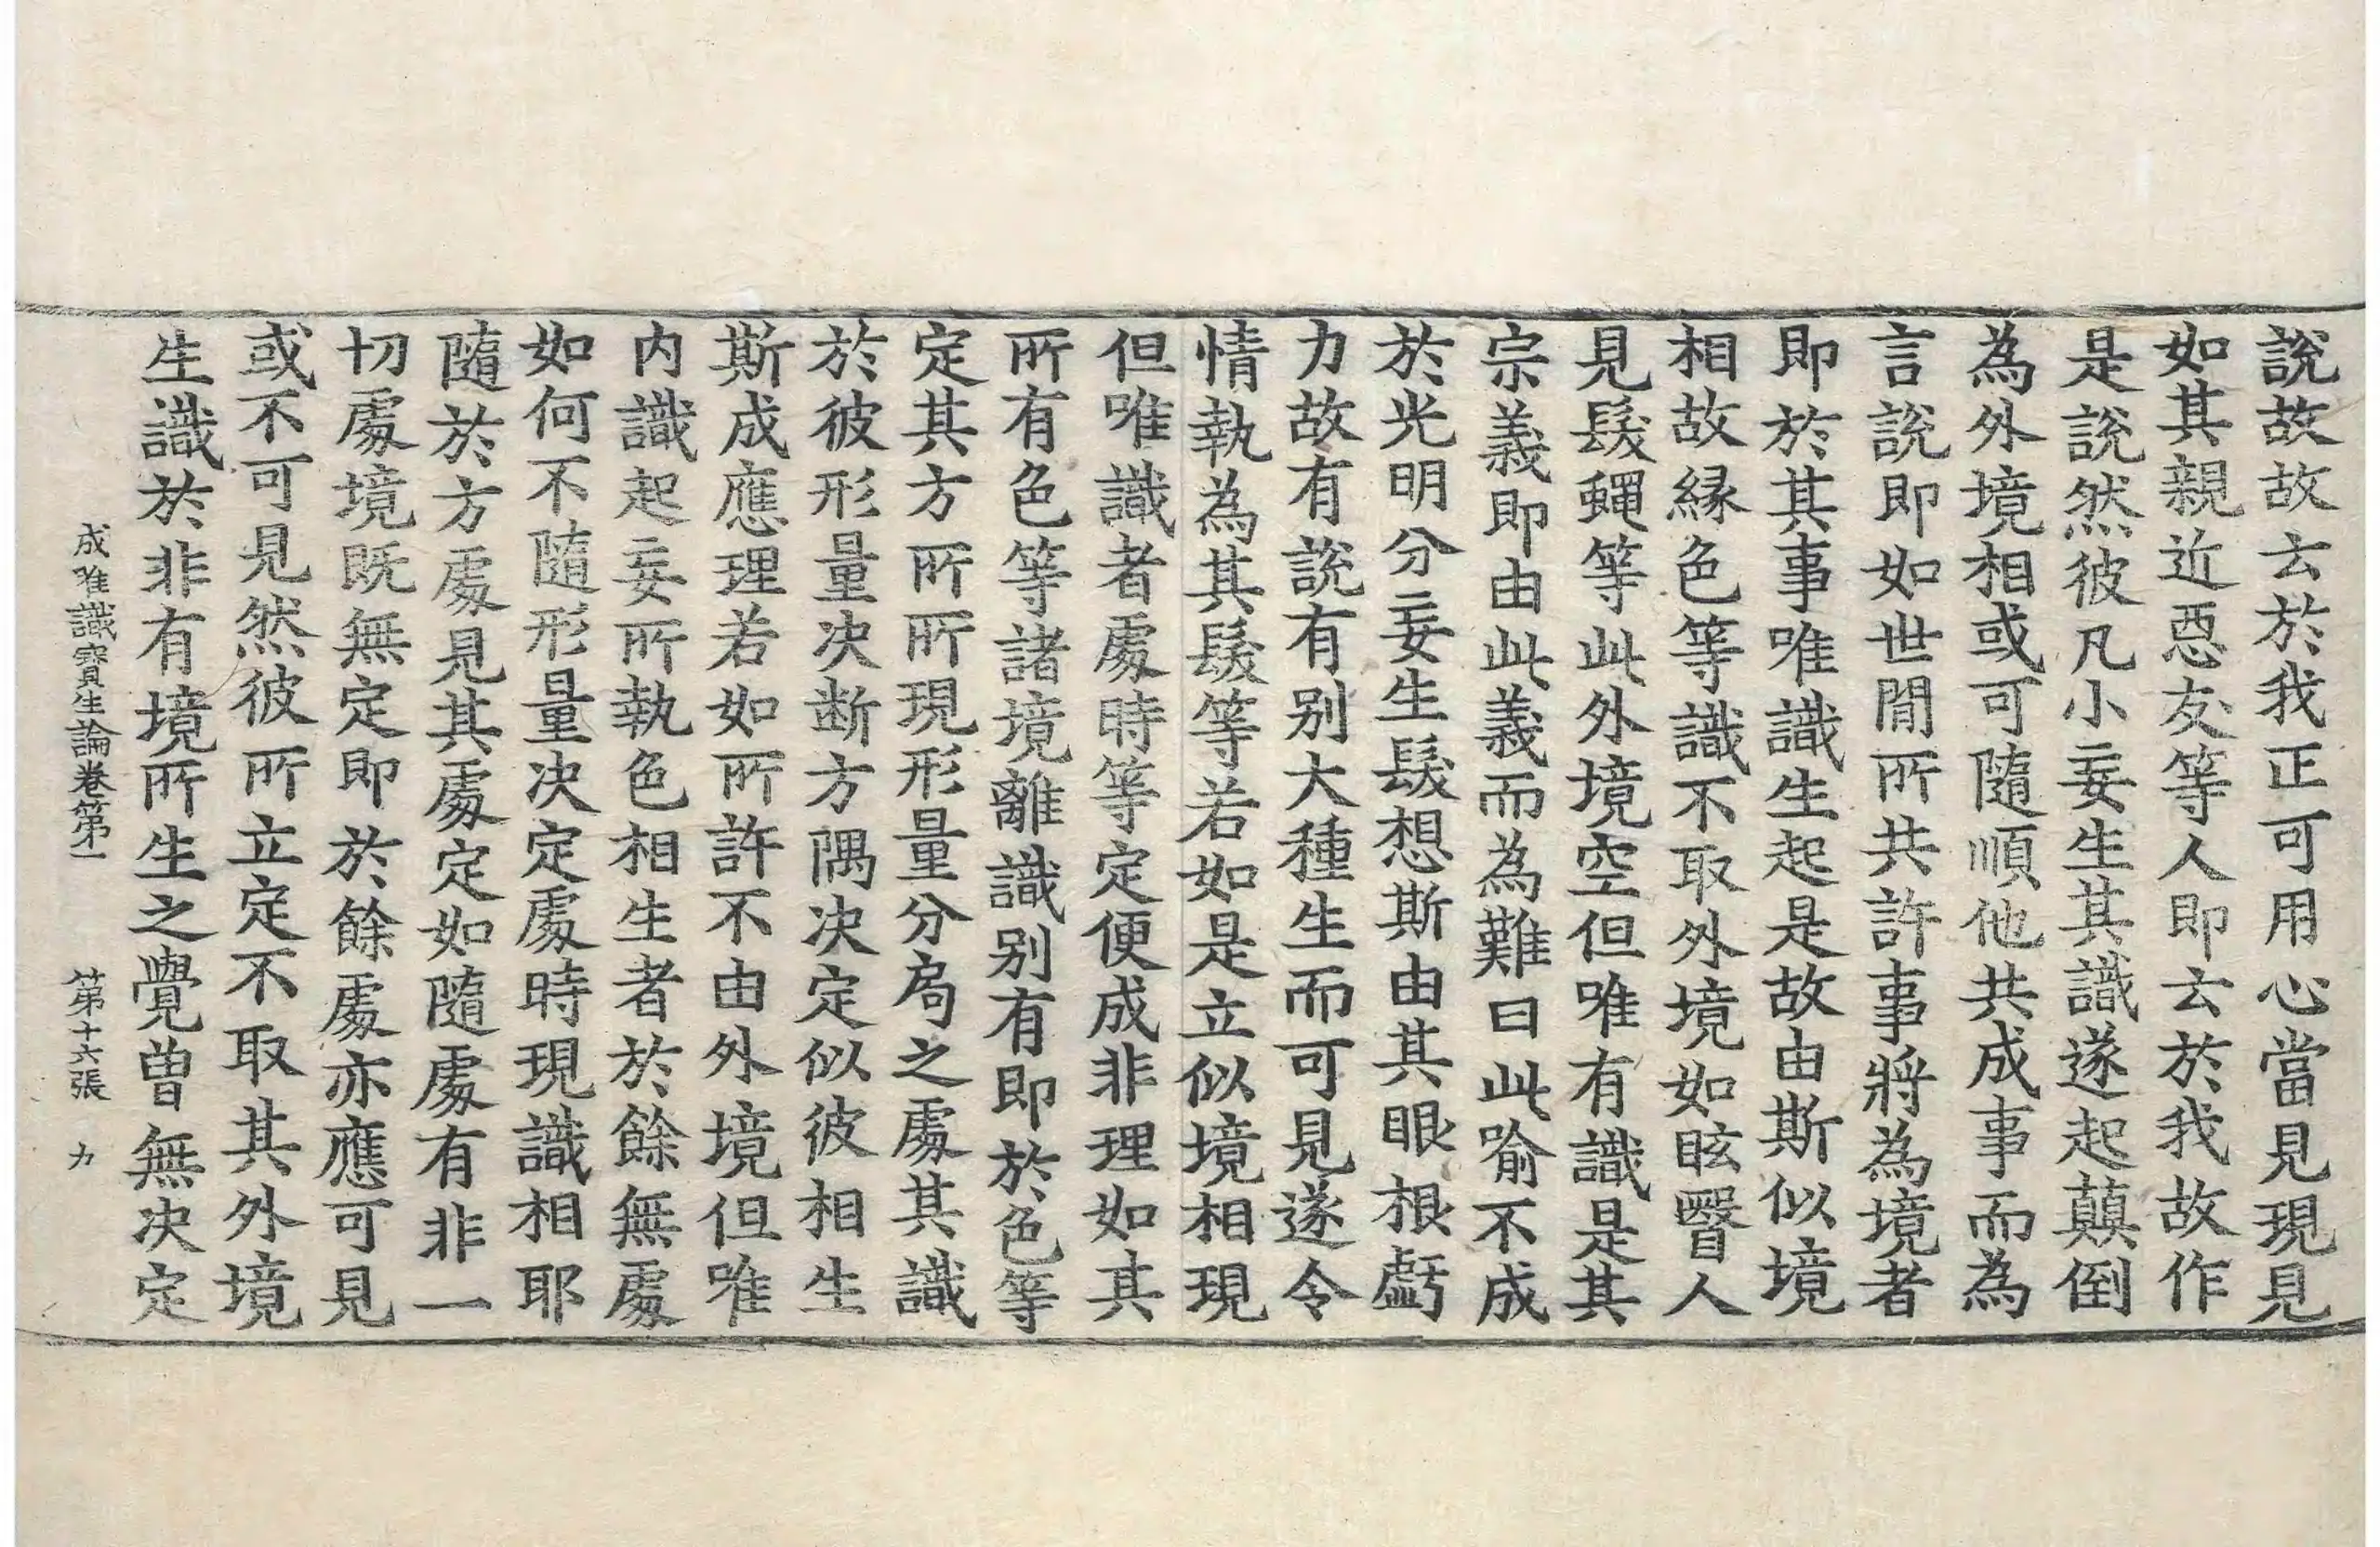 說故故去於我正可用心當見現見
如其親近惡友等人即去於我故作
是說然彼凡小妄生其識遂起顛倒
為外境相或可隨順他共成事而為
言說即如世間所共許事將為境者
即於其事唯識生起是故由斯似境
相故緣色等識不取外境如眩瞖人
見髮蠅等此外境空但唯有識是其
宗義即由此義而為難曰此喻不成
於光明分妄生髮想斯由其眼根虧
力故有說有別大種生而可見遂令
情執為其髮等若如是立似境相現
但唯識者處時等定便成非理如其
所有色等諸境離識別有即於色等
定其方所所現形量分局之處其識
於彼形量決断方隅決定似彼相生
斯成應理若如所許不由外境但唯
内識起妄所執色相生者於餘無處
如何不隨形量決定處時現識相耶
隨於方處見其處定如隨處有非一
切處境既無定即於餘處亦應可見
或不可見然彼所立定不取其外境
生識於非有境所生之覺曾無決定
成唯識寶生論卷第一 第十六張 力